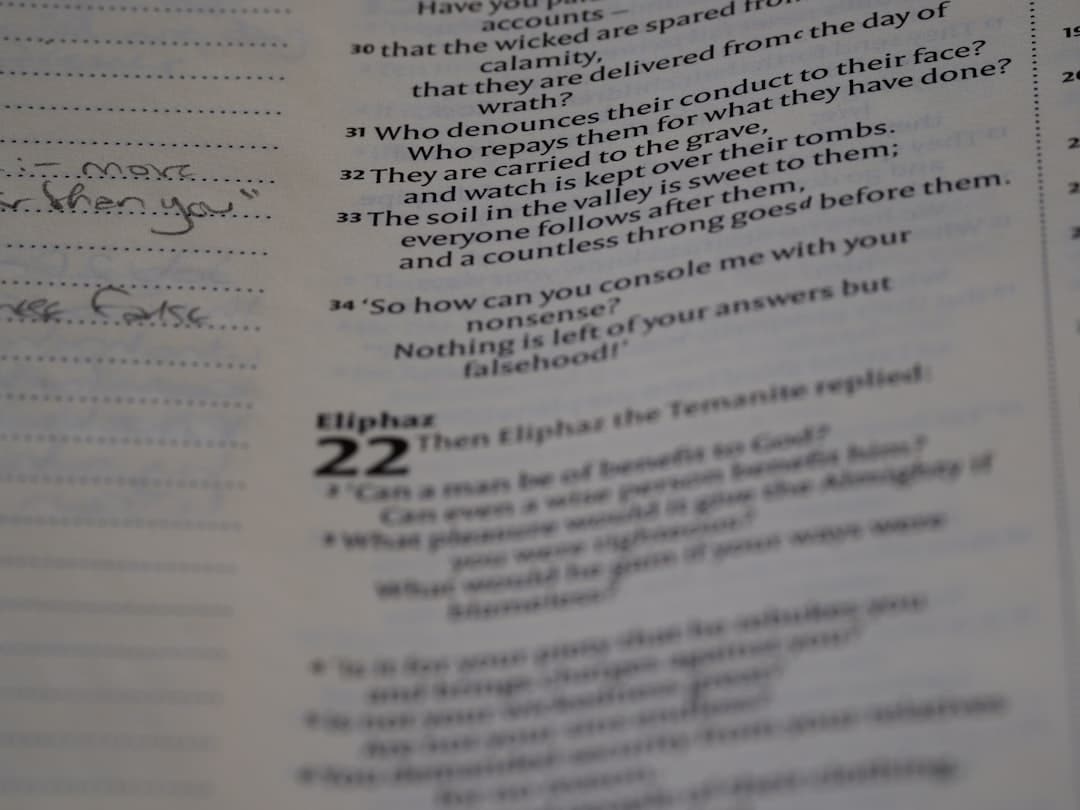 :- more
then you"
false
Have you
accounts –
30 that the wicked are spared from
calamity,
that they are delivered fromᶜ the day of
wrath?
31 Who denounces their conduct to their face?
Who repays them for what they have done?
32 They are carried to the grave,
and watch is kept over their tombs.
33 The soil in the valley is sweet to them;
everyone follows after them,
and a countless throng goesᵈ before them.
34 ‘So how can you console me with your
nonsense?
Nothing is left of your answers but
falsehood!’
Eliphaz
22 Then Eliphaz the Temanite replied:
2 ‘Can a man be of benefit to God?
Can even a wise person benefit him?
3 What pleasure would it give the Almighty if
you were righteous?
What would he gain if your ways were
blameless?
4 ‘Is it for your piety that he rebukes you
and brings charges against you?
5 Is not your wickedness great?
19